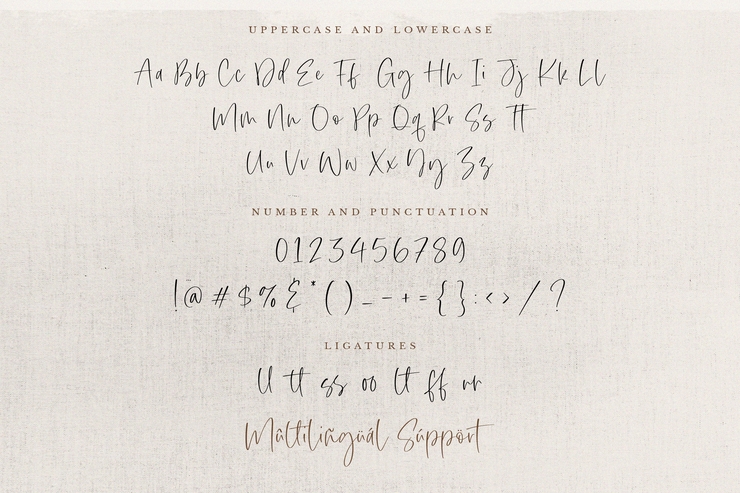 UPPERCASE AND LOWERCASE
Aa Bb Cc Dd Ee Ff Gg Hh Ii Jj Kk Ll
Mm Nn Oo Pp Qq Rr Ss Tt
Uu Vv Ww Xx Yy Zz
NUMBER AND PUNCTUATION
0123456789
!@#$%&*()_-+={}:<>/?
LIGATURES
ll tt ss oo lt ff rr
Mûltilingüál Súppört